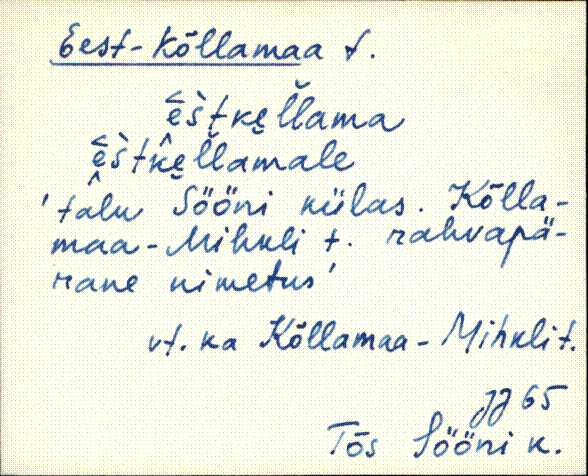 Eest-Kõllamaa t.
è͔štke̮l̆lama
è͔štke̮l̆lamale
'talu Sööni külas. Kõlla-
maa-Mihkli t. rahvapä-
rane nimetus'
vt. ka Kõllamaa-Mihkli t.
JJ 65
Tõs Sööni k.